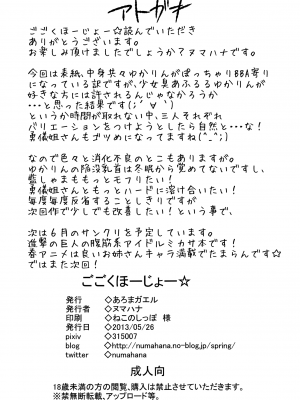 アトガキ
ごごくほーじょー☆読んでいただき
ありがとうございます。
お楽しみ頂けましたでしょうか?ヌマハナです。
今回は表紙、中身共々ゆかりんがぽっちゃりBBA寄り
になっている訳ですが、少女臭あふるるゆかりんが
好きな方には許されるんじゃなかろうか
…と思った結果です(;´∀`)
というか時間が取れない中、三人それぞれ
バリエーションをつけようとしたら自然と…な!
勇儀姐さんもゴツめになってますね(^_^;)
なので色々と消化不良のとこもありますが。
ゆかりんの陥没乳首は冬眠から覚めてないですし、
藍しゃまももっとモフりたい!
勇儀姐さんともっとハードに溶け合いたい!
毎度毎度反省することしきりですが
次回作で少しでも改善したい!という事で、
次は6月のサンクリを予定しています。
進撃の巨人の腹筋系アイドルミカサ本です!
春アニメは良いお姉さんキャラ満載でたまらんです☆
ではまた次回!
ごごくほーじょー☆
発行 ◇あろまガエル
発行者 ◇ヌマハナ
印刷 ◇ねこのしっぽ 様
発行日 ◇2013/05/26
pixiv ◇315007
blog ◇http://numahana.no-blog.jp/spring/
twitter ◇numahana
成人向
18歳未満の方の閲覧、購入は禁止させていただきます。
※禁無断転載、アップロード等。